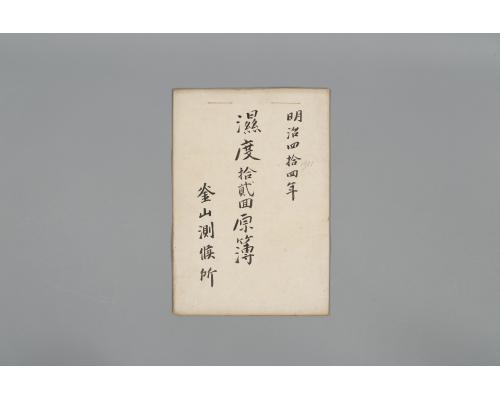 明治四拾四年
濕度拾貳回原簿
釜山測候所